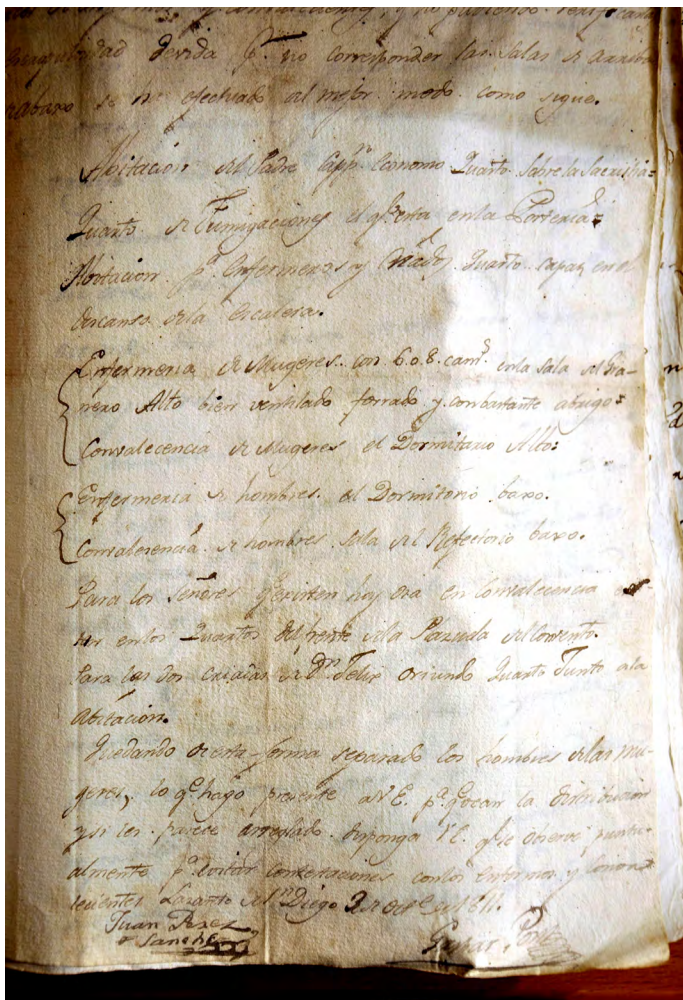 tranquilidad devida pr. no corresponder las salas de arriba
abaxo se ha efectuado al mejor modo como sigue.
Abitacion del Padre Cappn. Economo Quarto sobre la Sacristia=
Quarto de Fumigaciones el qe. esta en la Porteria=
Abitacion pa. Enfermeros y Criads. Quarto capaz en el
descanso dela Escalera.
Enfermeria de Mugeres con 6. o 8. cams. enla sala del Gra-
nero Alto bien ventilado forrado y con bastante abrigo=
Convalecencia de Mugeres el Dormitorio Alto=
Enfermeria de hombres el Dormitorio baxo.
Convalecencia de hombres sala del Refectorio baxo.
Para los señores qe. existen hoy dia en Convalecencia
enlos Quartos del frente dela Plazuela del Convento.
Para las dos criadas de Dn. Felix Oriundo Quarto Junto ala
Abitacion.
Quedando de esta forma separado los hombres delas Mu-
geres, lo qe. hago presente a V.E. pa. la distribucion
y si les parece arreglado disponga V.E. qe. se observe puntu-
almente pa. evitar conexaciones con los Enfermos y Conva-
lecientes Lazareto de Sn. Diego 2 de de 1811.
Juan Perez
Sanchez
Gaspar